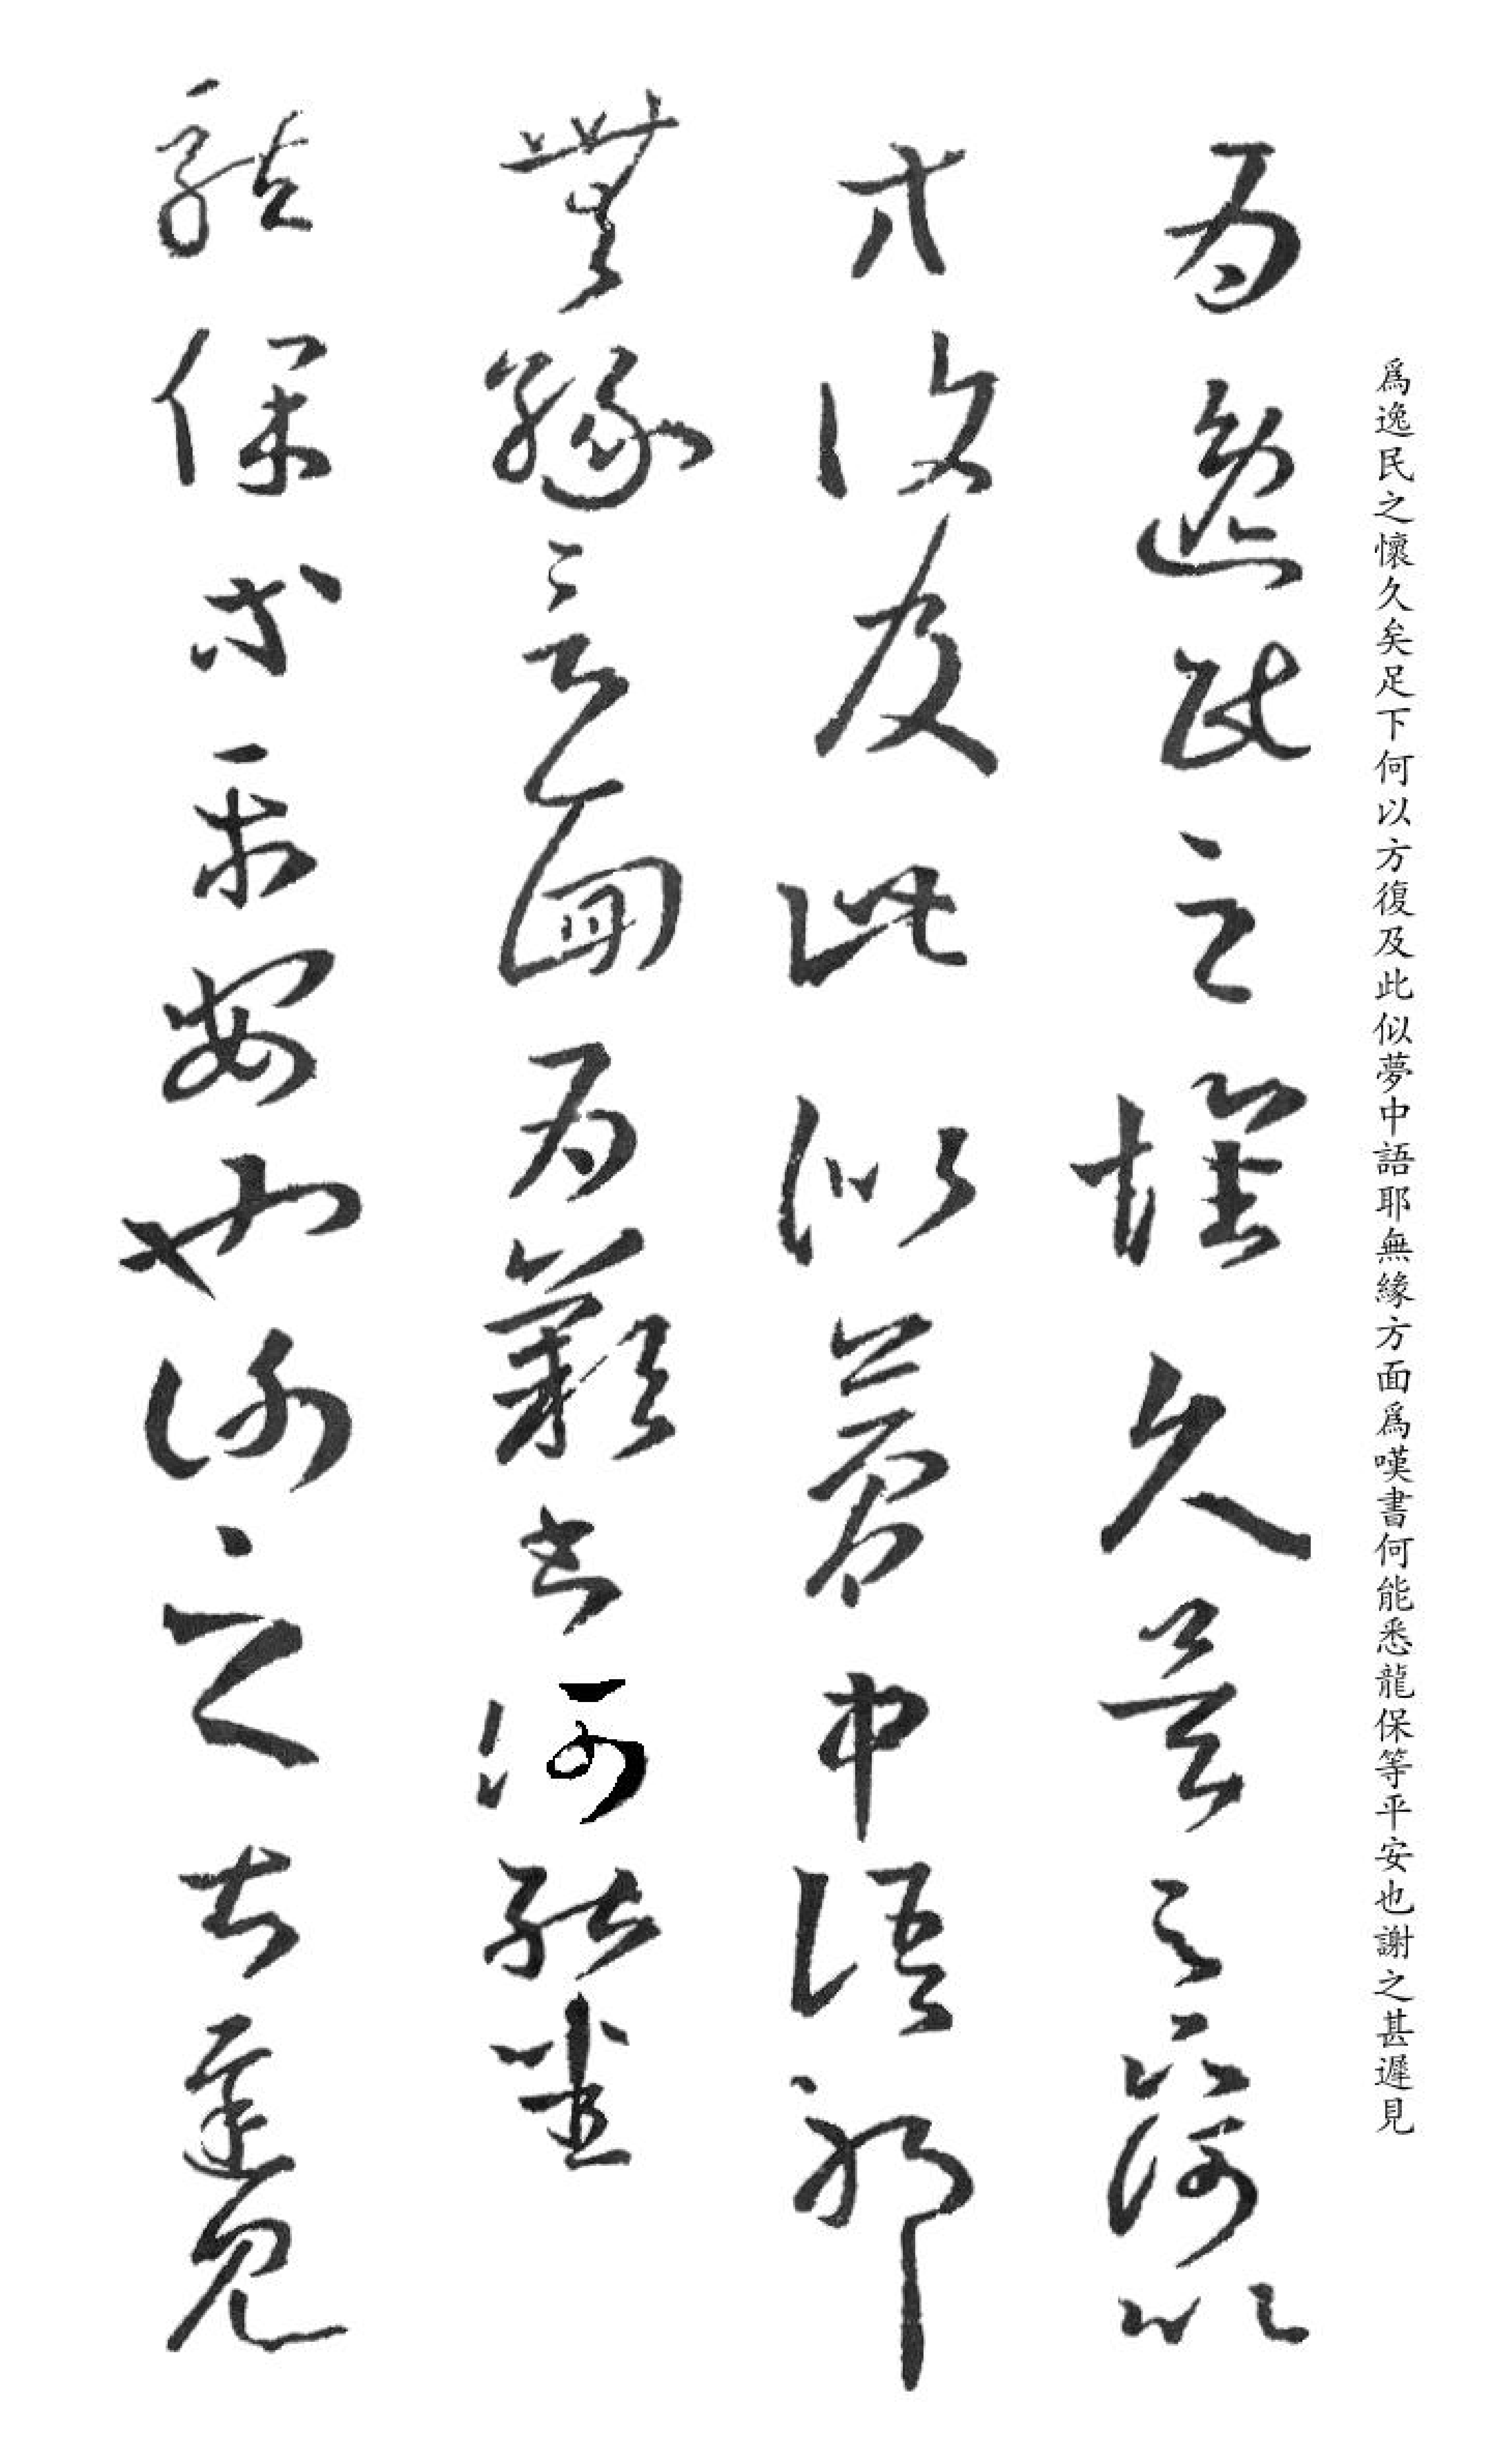 爲逸民之懷久矣足下何以方復及此似夢中語耶無緣方面爲嘆書何能悉龍保等平安也謝之甚遲見
爲逸民之懷久矣足下何以
方復及此似夢中語耶
無緣言面爲嘆書何能悉
龍保等平安也謝之甚遲見